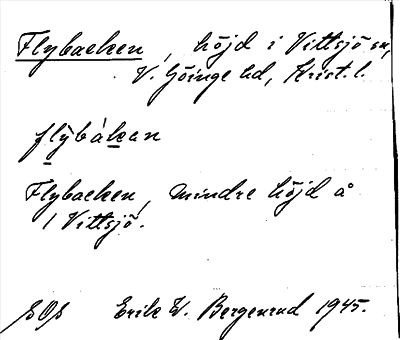 Flybacken, höjd i Vittsjö sn,
V. Göinge hd, Krist. l.
flybákan
Flybacken, mindre höjd å
1 Vittsjö.
Erik W. Bergenrud 1945.